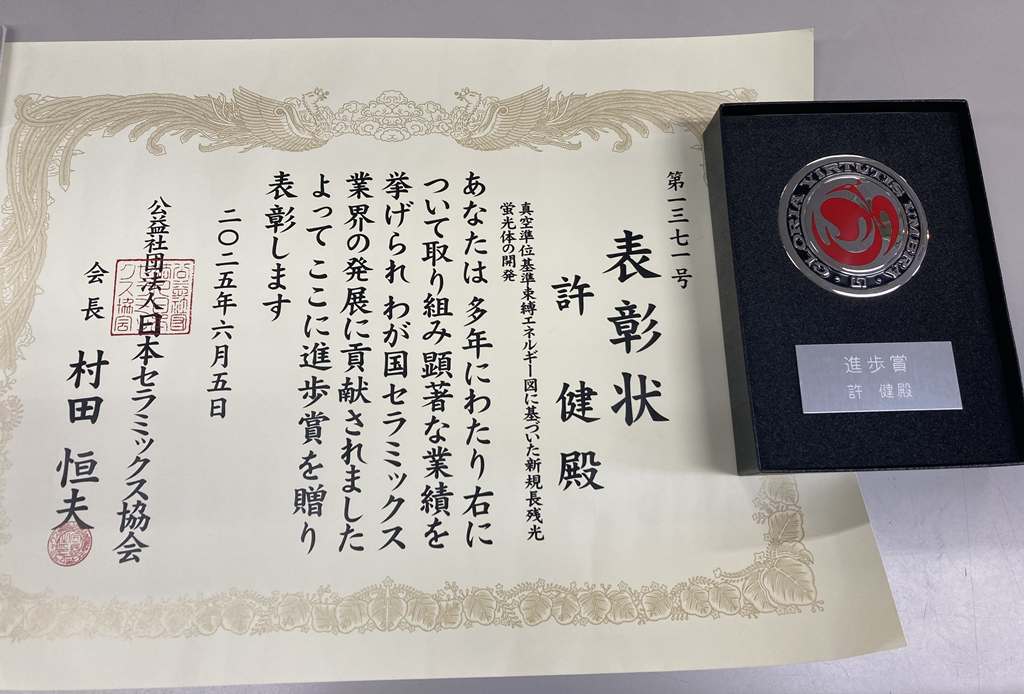 第一三七一号
表彰状
許 健 殿
真空準位基準束縛エネルギー図に基づいた新規長残光
蛍光体の開発
あなたは 多年にわたり右に
ついて取り組み顕著な業績を
挙げられ わが国セラミックス
業界の発展に貢献されました
よって ここに進歩賞を贈り
表彰します
二〇二五年六月五日
公益社団法人日本セラミックス協会
会長 村田 恒夫
GLORIA VIRTUTIS UMBRA
進歩賞
許 健殿